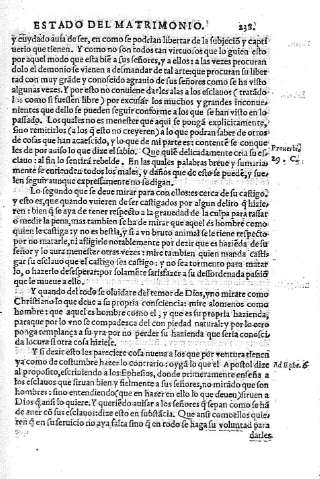 ESTADO DEL MATRIMONIO. 238.
y cuydado aufa de ser, en como se podrian libertar de la subjeciõ y capti
uerio que tienen. Y como no son todos tan virtuosos que lo guien esto
por aquel modo que esta biē a sus señores, y a ellos: a las vezes procuran
dolo el demonio se vienen a desmandar de tal arte que procuran su liber
tad con muy grãde y conoscido agrauio de sus señores como se ha visto
algunas vezes. Y por esto no conuiene darles alas a los esclauos (tratãdo
los como si fuessen libres) por excusar los muchos y grandes inconue
nientes que dello se pueden seguir conforme a los que se han visto en lo
passado. Los quales no es menester que aqui se pongã explicitamente,
sino remitirlos (a los q̃ esto no creyeren) a lo que podran saber de otros
de cosas que han acaescido, y lo que de mi parte est contentē se conque
les de por auiso lo que dize el sabio. Que quiē delicadamente cria su es-
clauo: al fin lo sentira rebelde. En las quales palabras breue y sumaria
mente se entienden todos los males, y daños que de esto se puedē, y sue
len seguir aunque expressamente no se digan.
Prouerbi.
29. C.
Lo segundo que se deue mirar para con ellos: es cerca de su castigo,
y esto es, que quando vuieren de ser castigados por algun delito q̃ hizie-
ren: bien q̃ se aya de tener respecto a la grauedad de la culpa para tassar
o medir la pena, mas tambien se ha de mirar que aquel es hombre como
quien le castiga: y no es bestia, y si a vn bruto animal se le tiene respecto
por no matarle, ni afligirle notablemente por dezir que es haziēda de su
señor y lo aura menester otras vezes: mire tambien quien manda casti-
gar su esclauo que el castigo sea castigo: y no sea tormento para matar
lo, o hazerlo desesperar: por solamēte satisfazer a su desordenada passiõ
que le mueue a ello.
Y quando del todo se oluidare del temor de Dios, y no mirare como
Christiano lo que deue a su propria consciencia: mire alomenos como
hombre: que aquel es hombre como el; y que es su propria hazienda,
para que por lo vno se compadesca del con piedad natural: y por lo otro
ponga templança a su yra por no perder su hazienda que seria conosci
da locura si otra cosa hiziesse.
Y si dezir esto les paresciere cosa nueua a los que por ventura tienen
ya como de costumbre hazer lo contrario: oyga lo que el Apostol dize
al proposito, escriuiendo a los Ephesios, donde primeramente enseña a
los esclauos que siruan bien y fielmente a sus señores, no mirãdo que son
hombres: sino entendiendo (que en hazer en ello lo que deuen) siruen a
Dios q̃ ansi lo quiere. Y queriēdo auisar a los señores q̃ sepan como se hã
de auer cõ sus esclauos: dize esto en substãcia. Que ansi como ellos quie
ren q̃ en su seruicio no aya falta sino q̃ en todo se haga su voluntad para
Ad Ephe. 6
darles